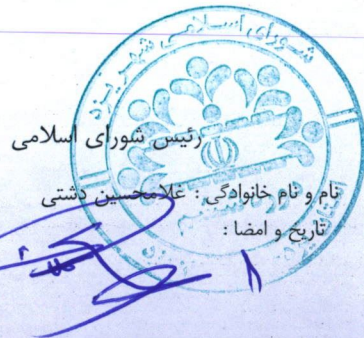 شورای اسلامی شهر یزد
رئیس شورای اسلامی
نام و نام خانوادگی : غلامحسین دشتی
تاریخ و امضا :